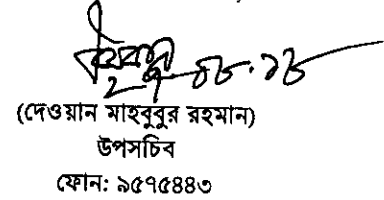 (দেওয়ান মাহবুবুর রহমান)
উপসচিব
ফোন: ৯৫৭৫৪৪৩